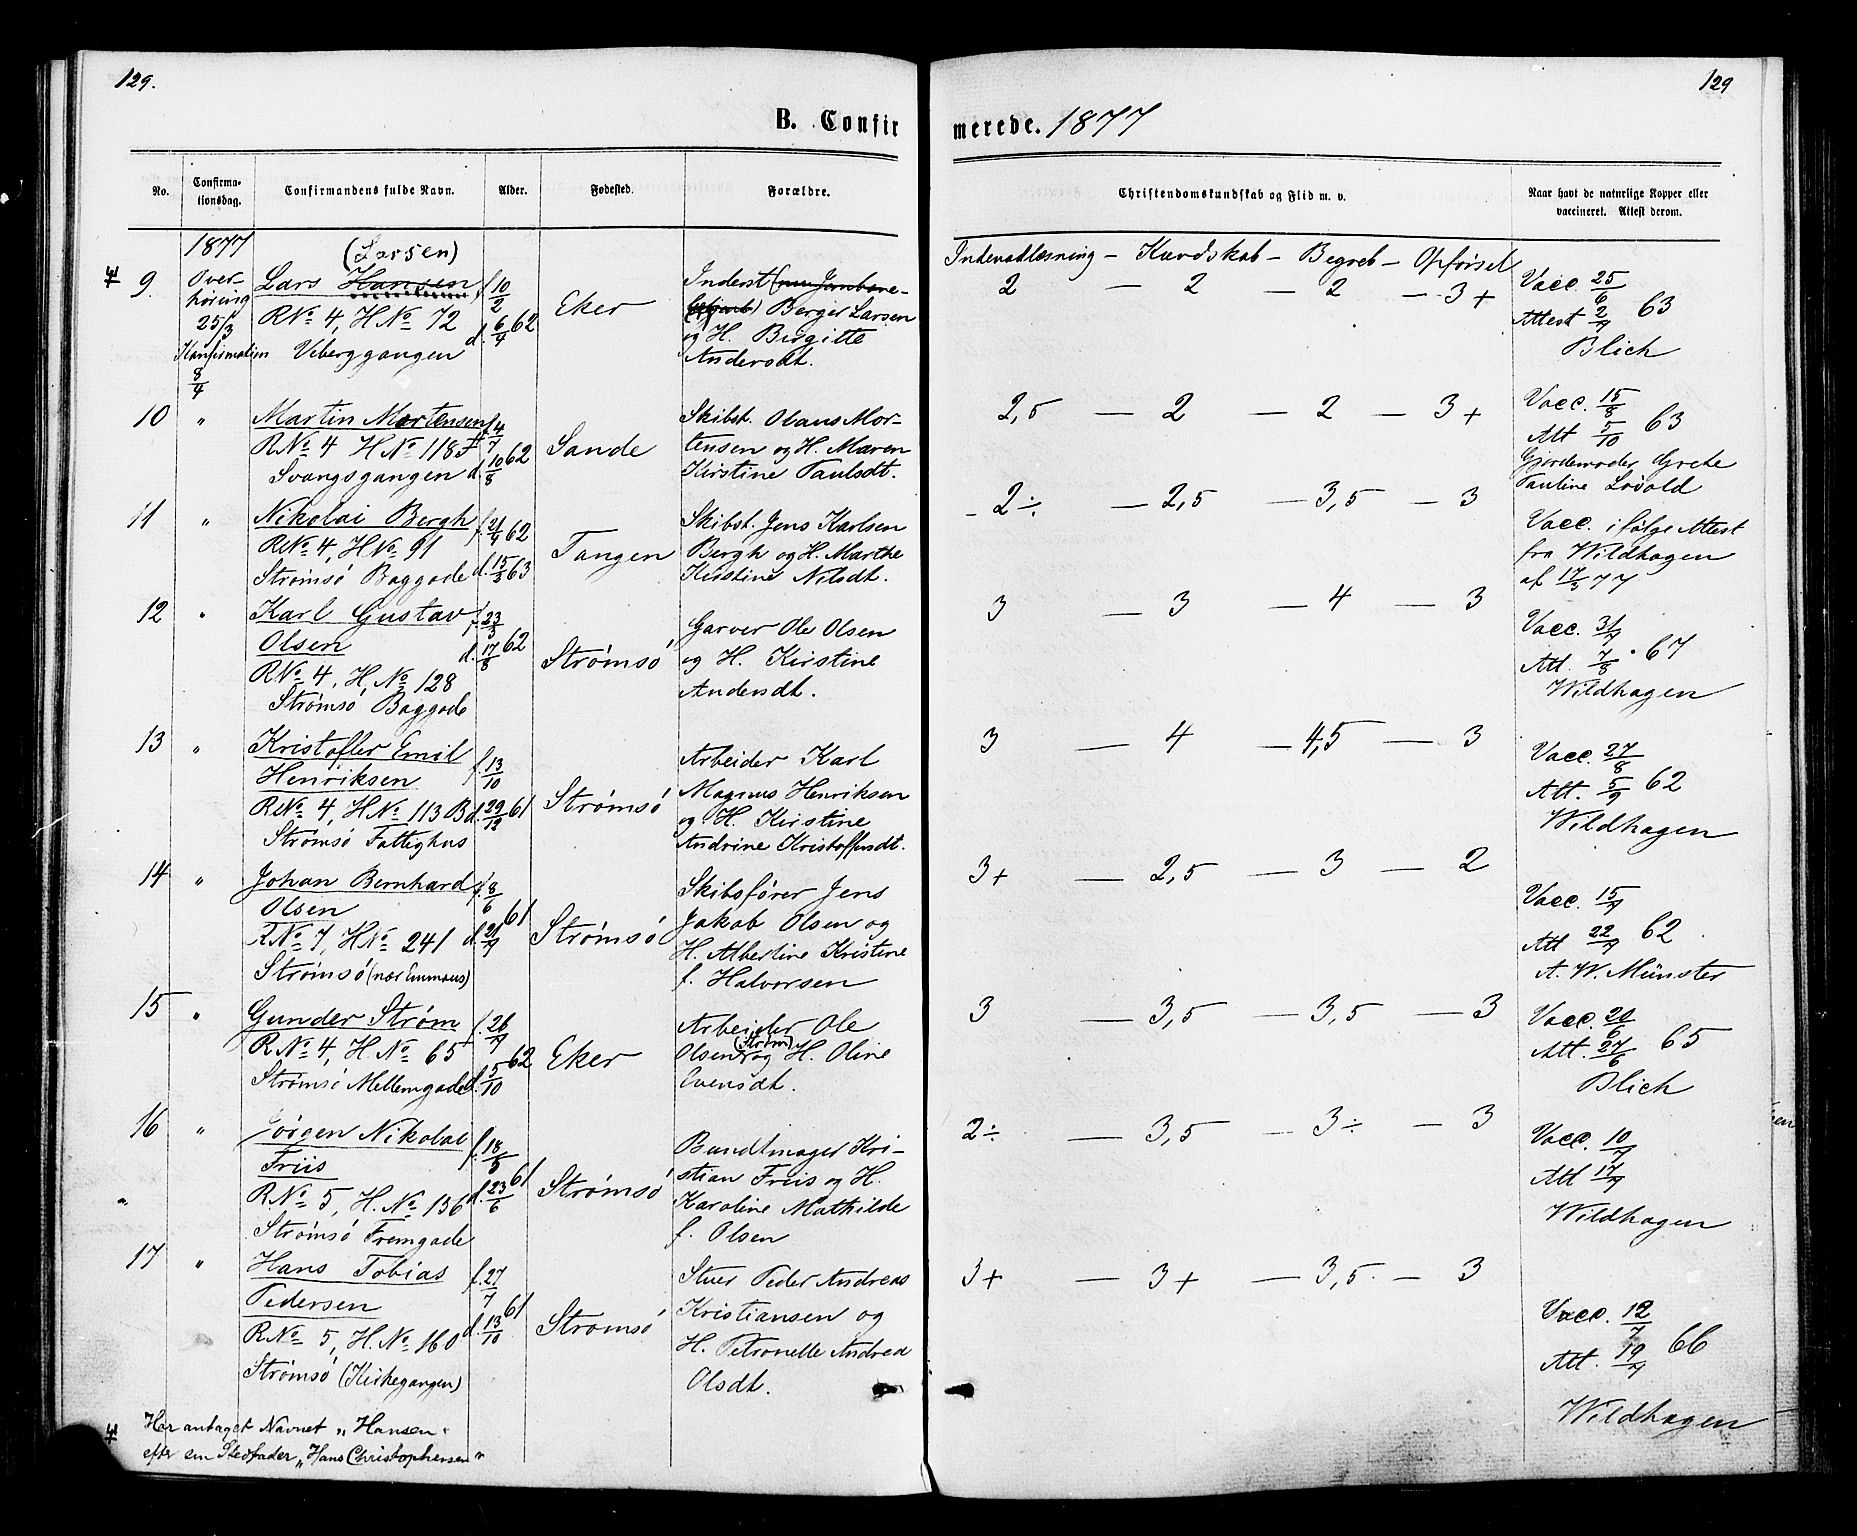 129.
129
B. Confir
merede. 1877
No.
Confirma-
tionsdag.
Confirmandens fulde Navn.
Alder.
Fødested.
Forældre.
Christendomskundskab og Flid m. v.
Naar havt de naturlige Kopper eller
vaccineret. Attest derom.
1877
Indenadlæsning – Kundskab – Begreb – Opførsel
9.
Over-
høring
25/3
Konfirmation
8/4
(Larsen)
Lars Hansen
R№ 4, H№ 72
Viberggangen
f. 10/2
d. 6/4 62
Eker
Inderst
Berger Larsen
og H. Birgitte
Andersdt.
2 – 2 – 2 – 3+
Vacc. 25/6
Attest 2/7 63
Blich
10
"
Martin Mortensen
R№ 4 H№ 118 F
Svangsgangen
f. 4/7
d. 10/8 62
Sande
Skibst. Olaus Mor-
tensen og H. Maren
Kirstine Paulsdt.
2,5 – 2 – 2 – 3+
Vacc. 15/8
Att 5/10 63
Gjordemoder Grete
Pauline Lövold
11
"
Nikolai Bergh
R№ 4, H№ 91
Strømsö Baggade
f. 21/4 62
d. 15/3 63
Tangen
Skibst. Jens Karlsen
Bergh og H. Marthe
Kirstine Nilsdt.
2÷ – 2,5 – 3,5 – 3
Vacc. ifølge Attest
fra Wildhagen
af 17/3 77
12
"
Karl Gustav
Olsen
R№ 4, H.№ 128
Strømsö Baggade
f. 23/3
d. 17/8 62
Strømsö
Garver Ole Olsen
og H. Kirstine
Andersdt.
3 – 3 – 4 – 3
Vacc. 31/7
Att. 7/8 67
Wildhagen
13
"
Kristoffer Emil
Henriksen
R№ 4, H№ 113 B
Strømsö Fattighus
f. 13/10
d. 29/12 61
Strømsö
Arbeider Karl
Magnus Henriksen
og H. Kirstine
Andrine Kristoffersdt.
3 – 4 – 4,5 – 3
Vacc. 27/8
Att. 5/9 62
Wildhagen
14
"
Johan Bernhard
Olsen
R№ 7, H№ 241
Strømsö (nær Emmaus)
f. 8/6
d. 21/7 61
Strømsö
Skibsfører Jens
Jakob Olsen og
H. Albertine Kristine
f. Halvorsen
3+ – 2,5 – 3 – 2
Vacc. 15/7
Att 22/7 62
A. W. Münster
15
"
Gunder Strøm
R№ 4, H.№ 65
Strømsö Mellemgade
f. 26/7
d. 5/10 62
Eker
Arbeider Ole
Olsen (Strøm) og H. Oline
Evensdt.
3 – 3,5 – 3,5 – 3
Vacc. 20/6
Att. 27/6 65
Blich
16
"
Jörgen Nikolai
Friis
R.№ 5, H.№ 136
Strømsö Fremgade
f. 18/5
d. 23/6 61
Strømsö
Bundtmager Kri-
stian Friis og H.
Karoline Mathilde
f. Olsen
2÷ – 3,5 – 3÷ – 3
Vacc. 10/7
Att 17/7
Wildhagen
17
"
Hans Tobias
Pedersen
R№ 5, H.№ 160
Strømsö (Kirkegangen)
f. 27/7
d. 13/10 61
Strømsö
Stuer Peder Andreas
Kristiansen og
H. Petronelle Andrea
Olsdt.
3+ – 3+ – 3,5 – 3
Vacc. 12/7
Att. 19/7 66
Wildhagen
Har antaget Navnet „Hansen"
efter sin Stedfader „Hans Christophersen"